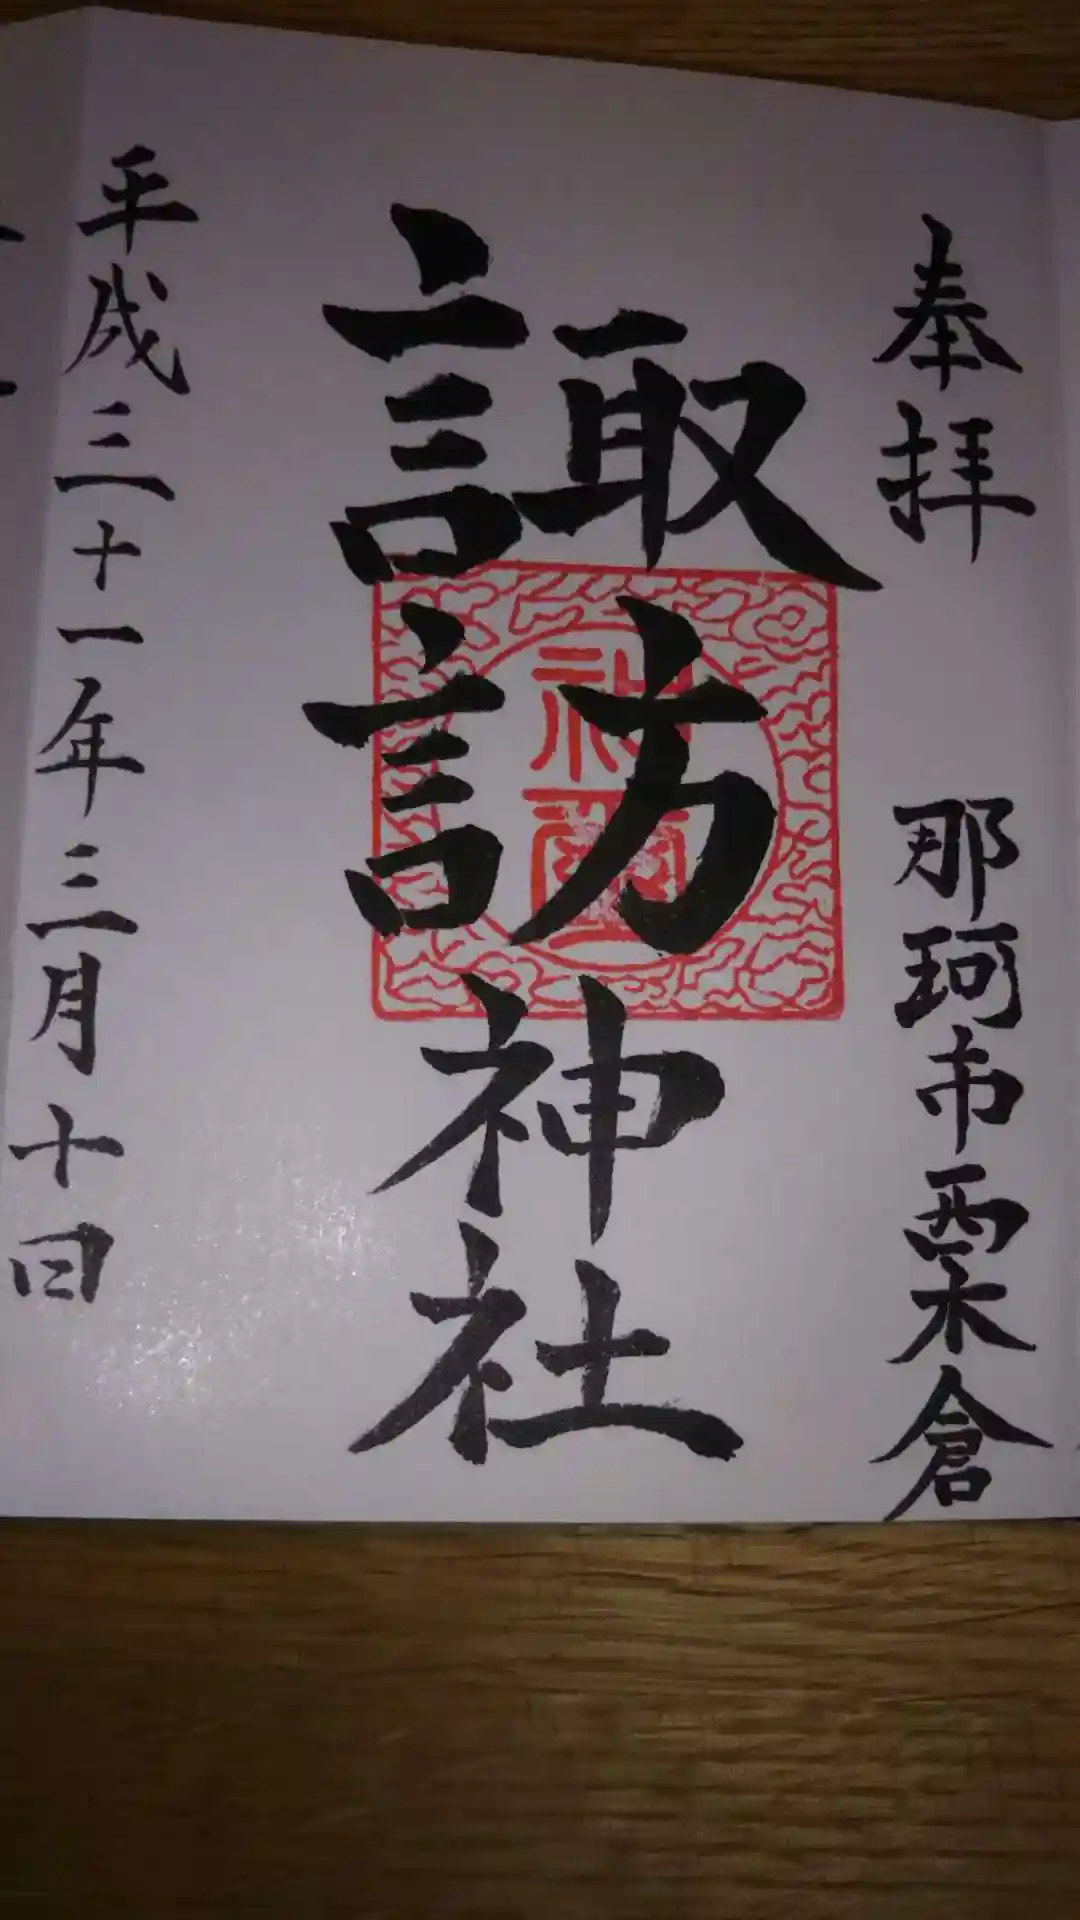 奉拝
那珂市粟倉
諏訪神社
神璽
平成三十一年三月十日